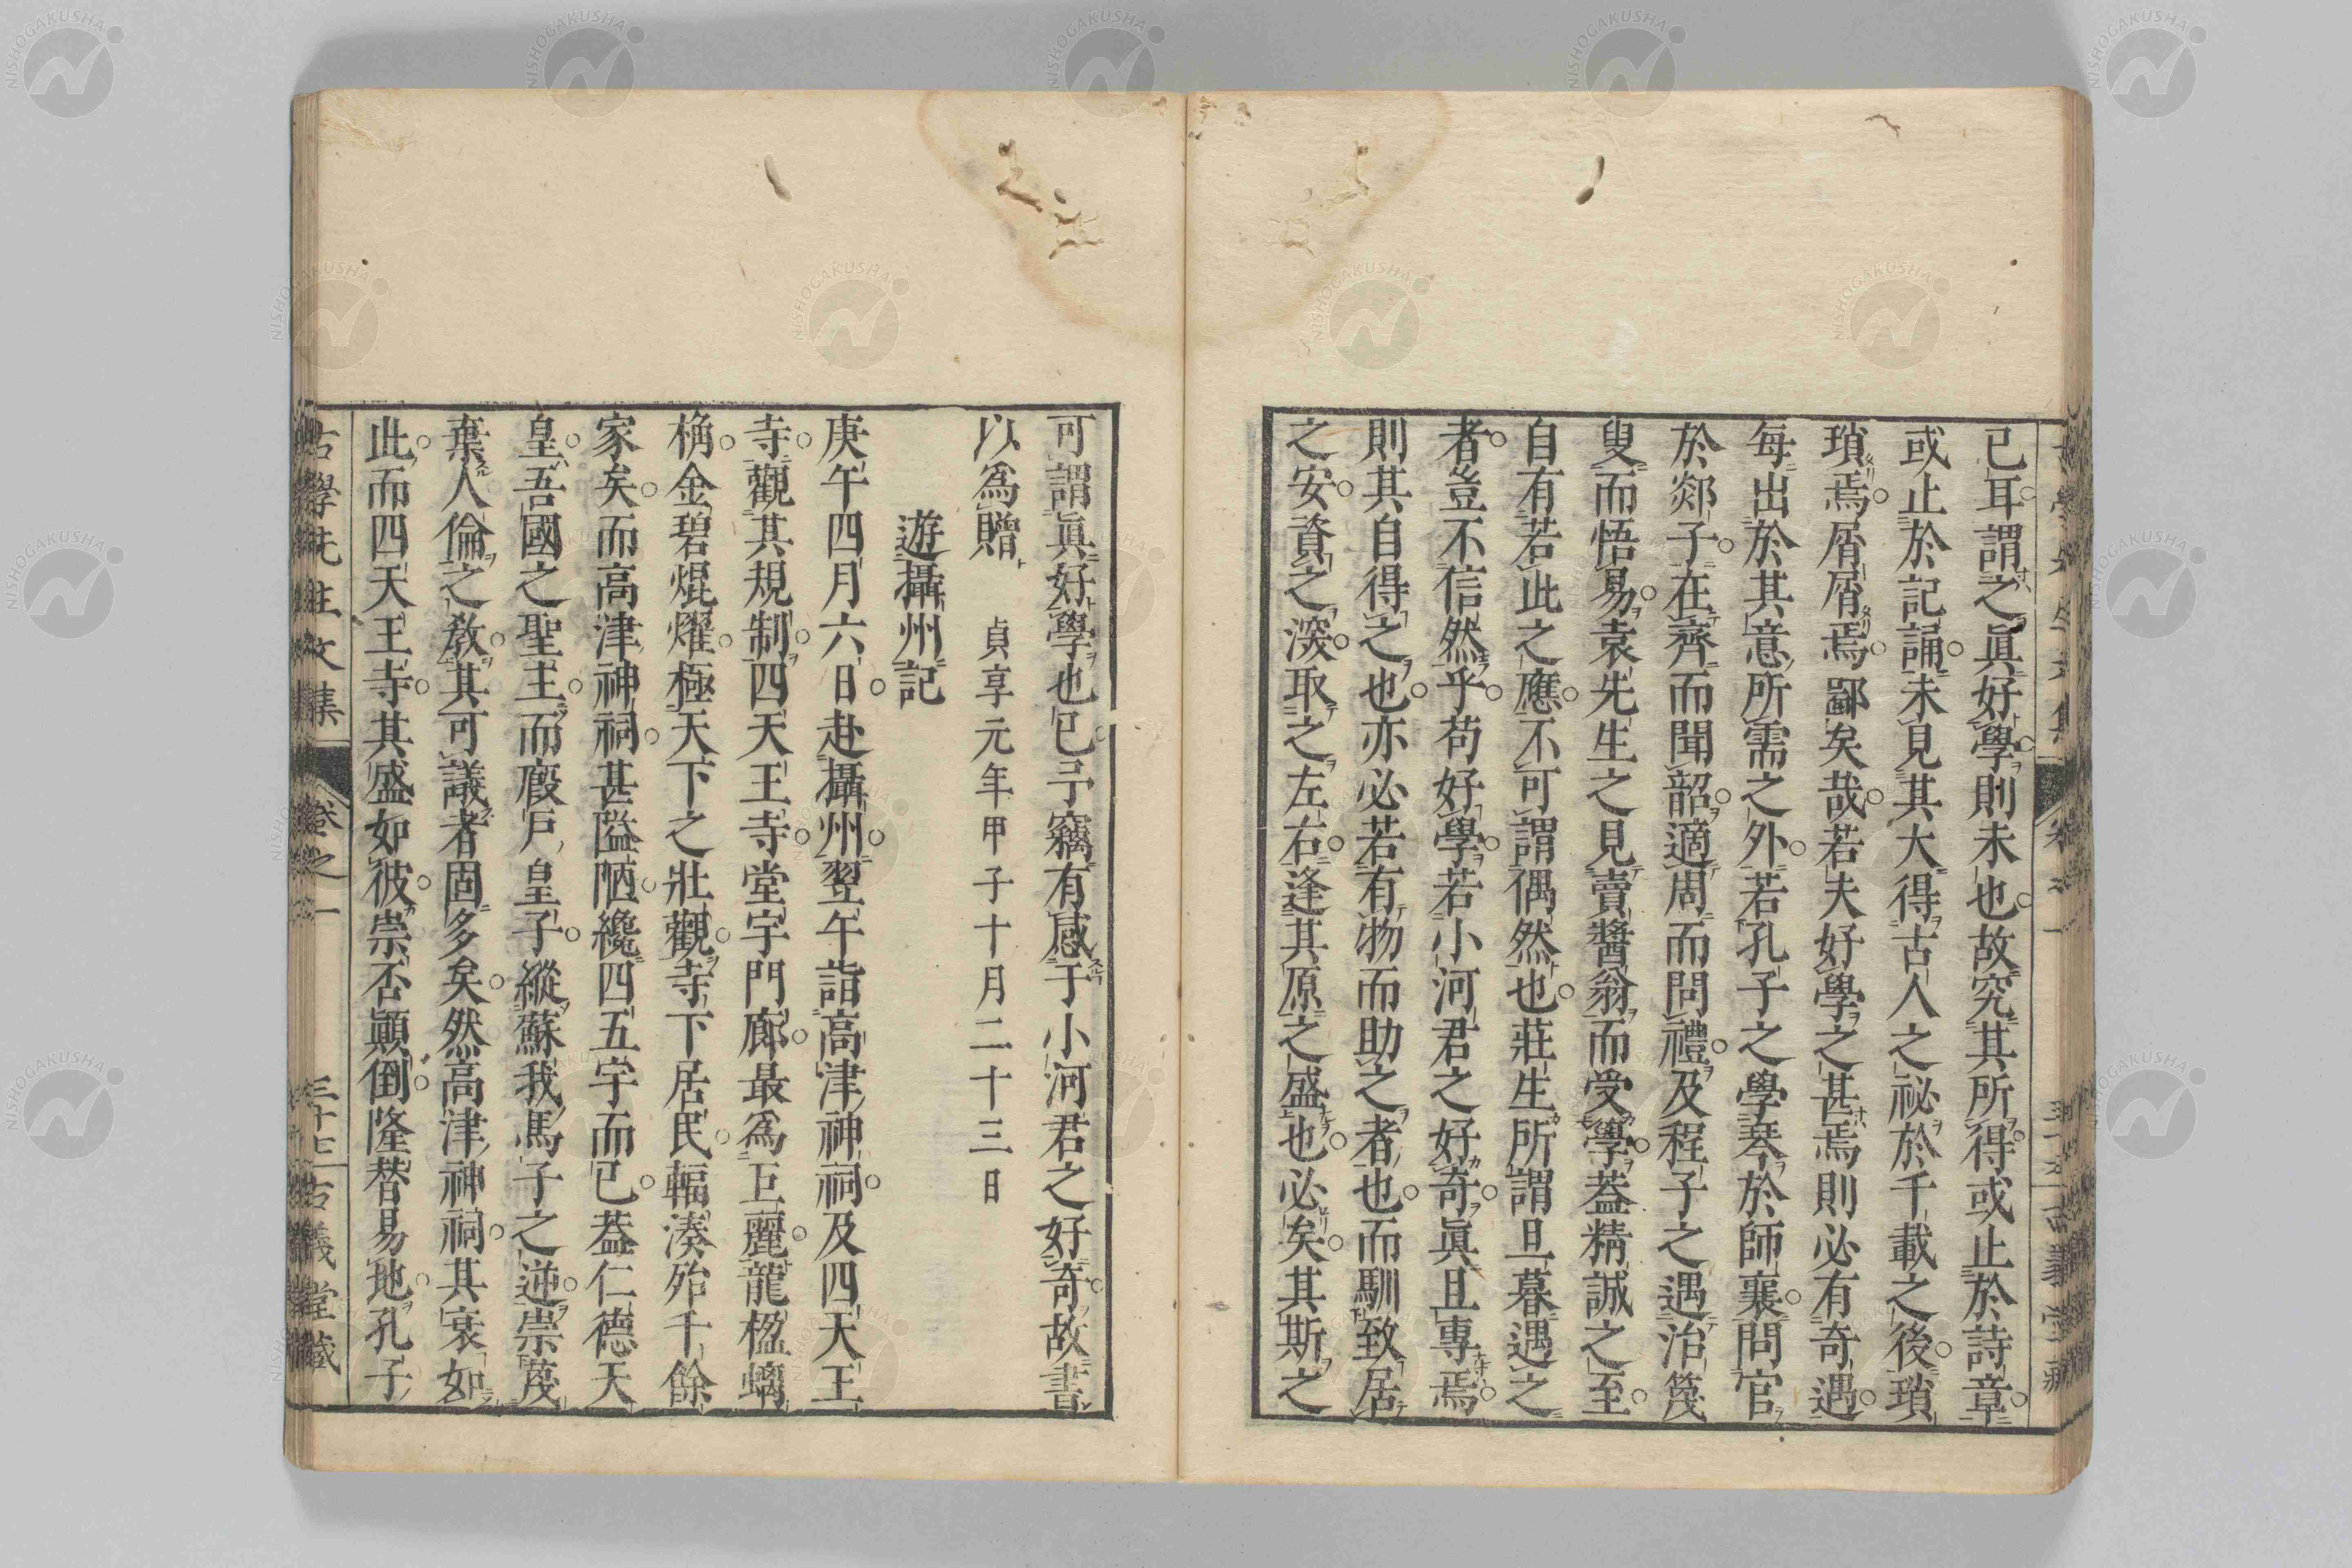 已耳謂之眞好學則未也故究其所得或止於詩章
或止於記誦未見其大得古人之祕於千載之後瑣
瑣焉屑屑焉鄙矣哉若夫好學之甚焉則必有奇遇
每出於其意所需之外若孔子之學琴於師襄問官
於郯子在齊而聞韶適周而問禮及程子之遇治篾
叟而悟易袁先生之見賣醬翁而受學葢精誠之至
自有若此之應不可謂偶然也莊生所謂旦暮遇之
者豈不信然乎苟好學若小河君之好奇眞且專焉
則其自得之也亦必若有物而助之者也而馴致居
之安資之深取之左右逢其原之盛也必矣其斯之
可謂眞好學也已予竊有感于小河君之好奇故書
以爲贈 貞享元年甲子十月二十三日
遊攝州記
庚午四月六日赴攝州翌午詣高津神祠及四天王
寺觀其規制四天王寺堂宇門廊最爲巨麗龍楹螭
桷金碧焜燿極天下之壯觀寺下居民輻湊殆千餘
家矣而高津神祠甚隘陋纔四五宇而已葢仁德天
皇吾國之聖主而廐戶皇子縱蘇我馬子之逆崇蔑
棄人倫之敎其可議者固多矣然高津神祠其衰如
此而四天王寺其盛如彼崇否顚倒隆替易地孔子
古學先生文集 卷之一 三十七 古義堂藏
NISHOGAKUSHA